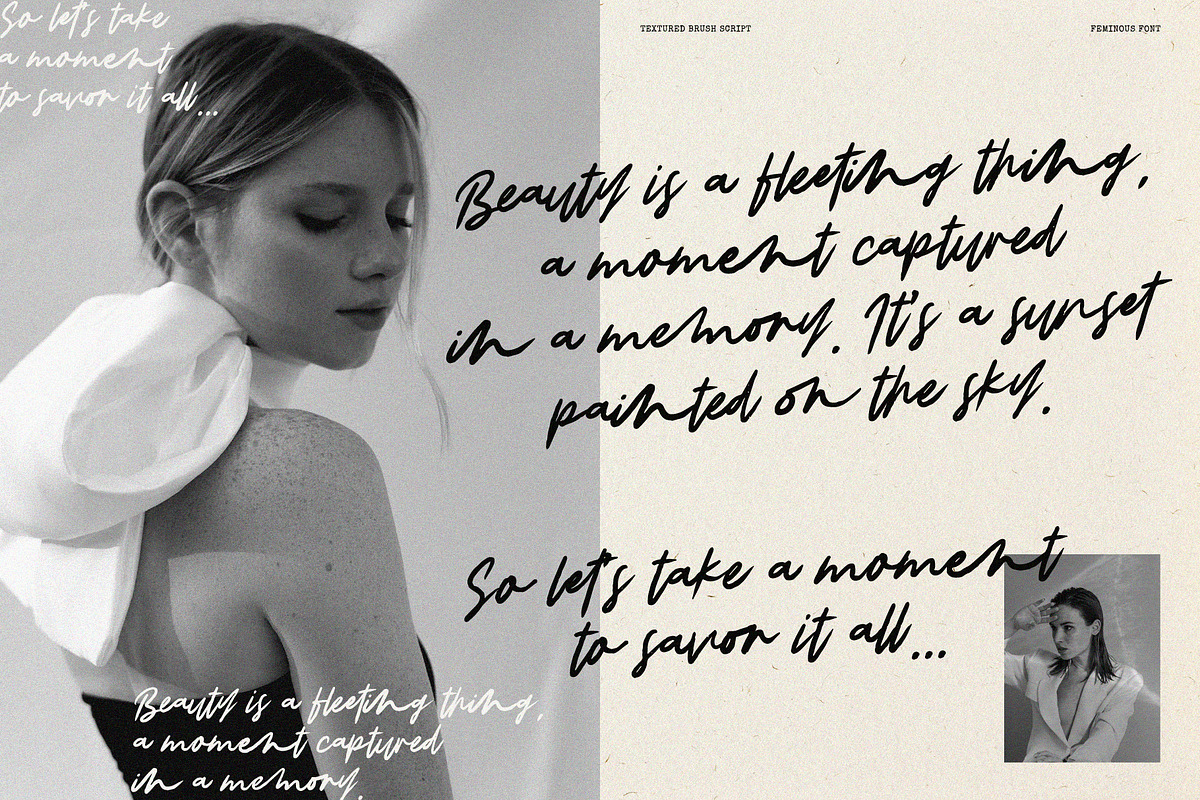 So let's take
a moment
to savor it all...
TEXTURED BRUSH SCRIPT
FEMINOUS FONT
Beauty is a fleeting thing,
a moment captured
in a memory. It's a sunset
painted on the sky.
So let's take a moment
to savor it all...
Beauty is a fleeting thing,
a moment captured
in a memory.